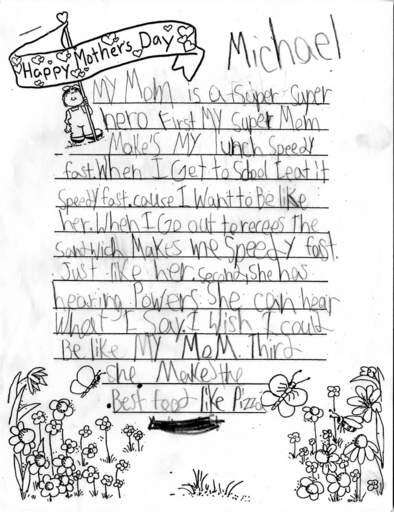 Happy Mother's Day
Michael
My Mom is a super super
hero First My super Mom
Makes My lunch Speedy
fast. When I Get to School I eat it
Speedy fast. cause I Want to Be like
her. When I Go out to recges The
sandwich Makes me Speedy fast.
Just like her. second, she has
hearing Powers. She can hear
What I Say. I Wish I could
Be like MY MoM. Third
she Makes the
Best food like Pizza